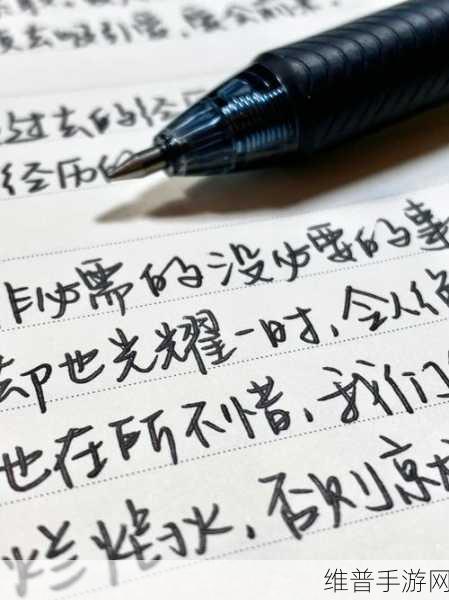 过去的经历
经历的
非必需的没必要的事
却也光耀一时，令人
也在所不惜，我们
火，否则
维普手游网